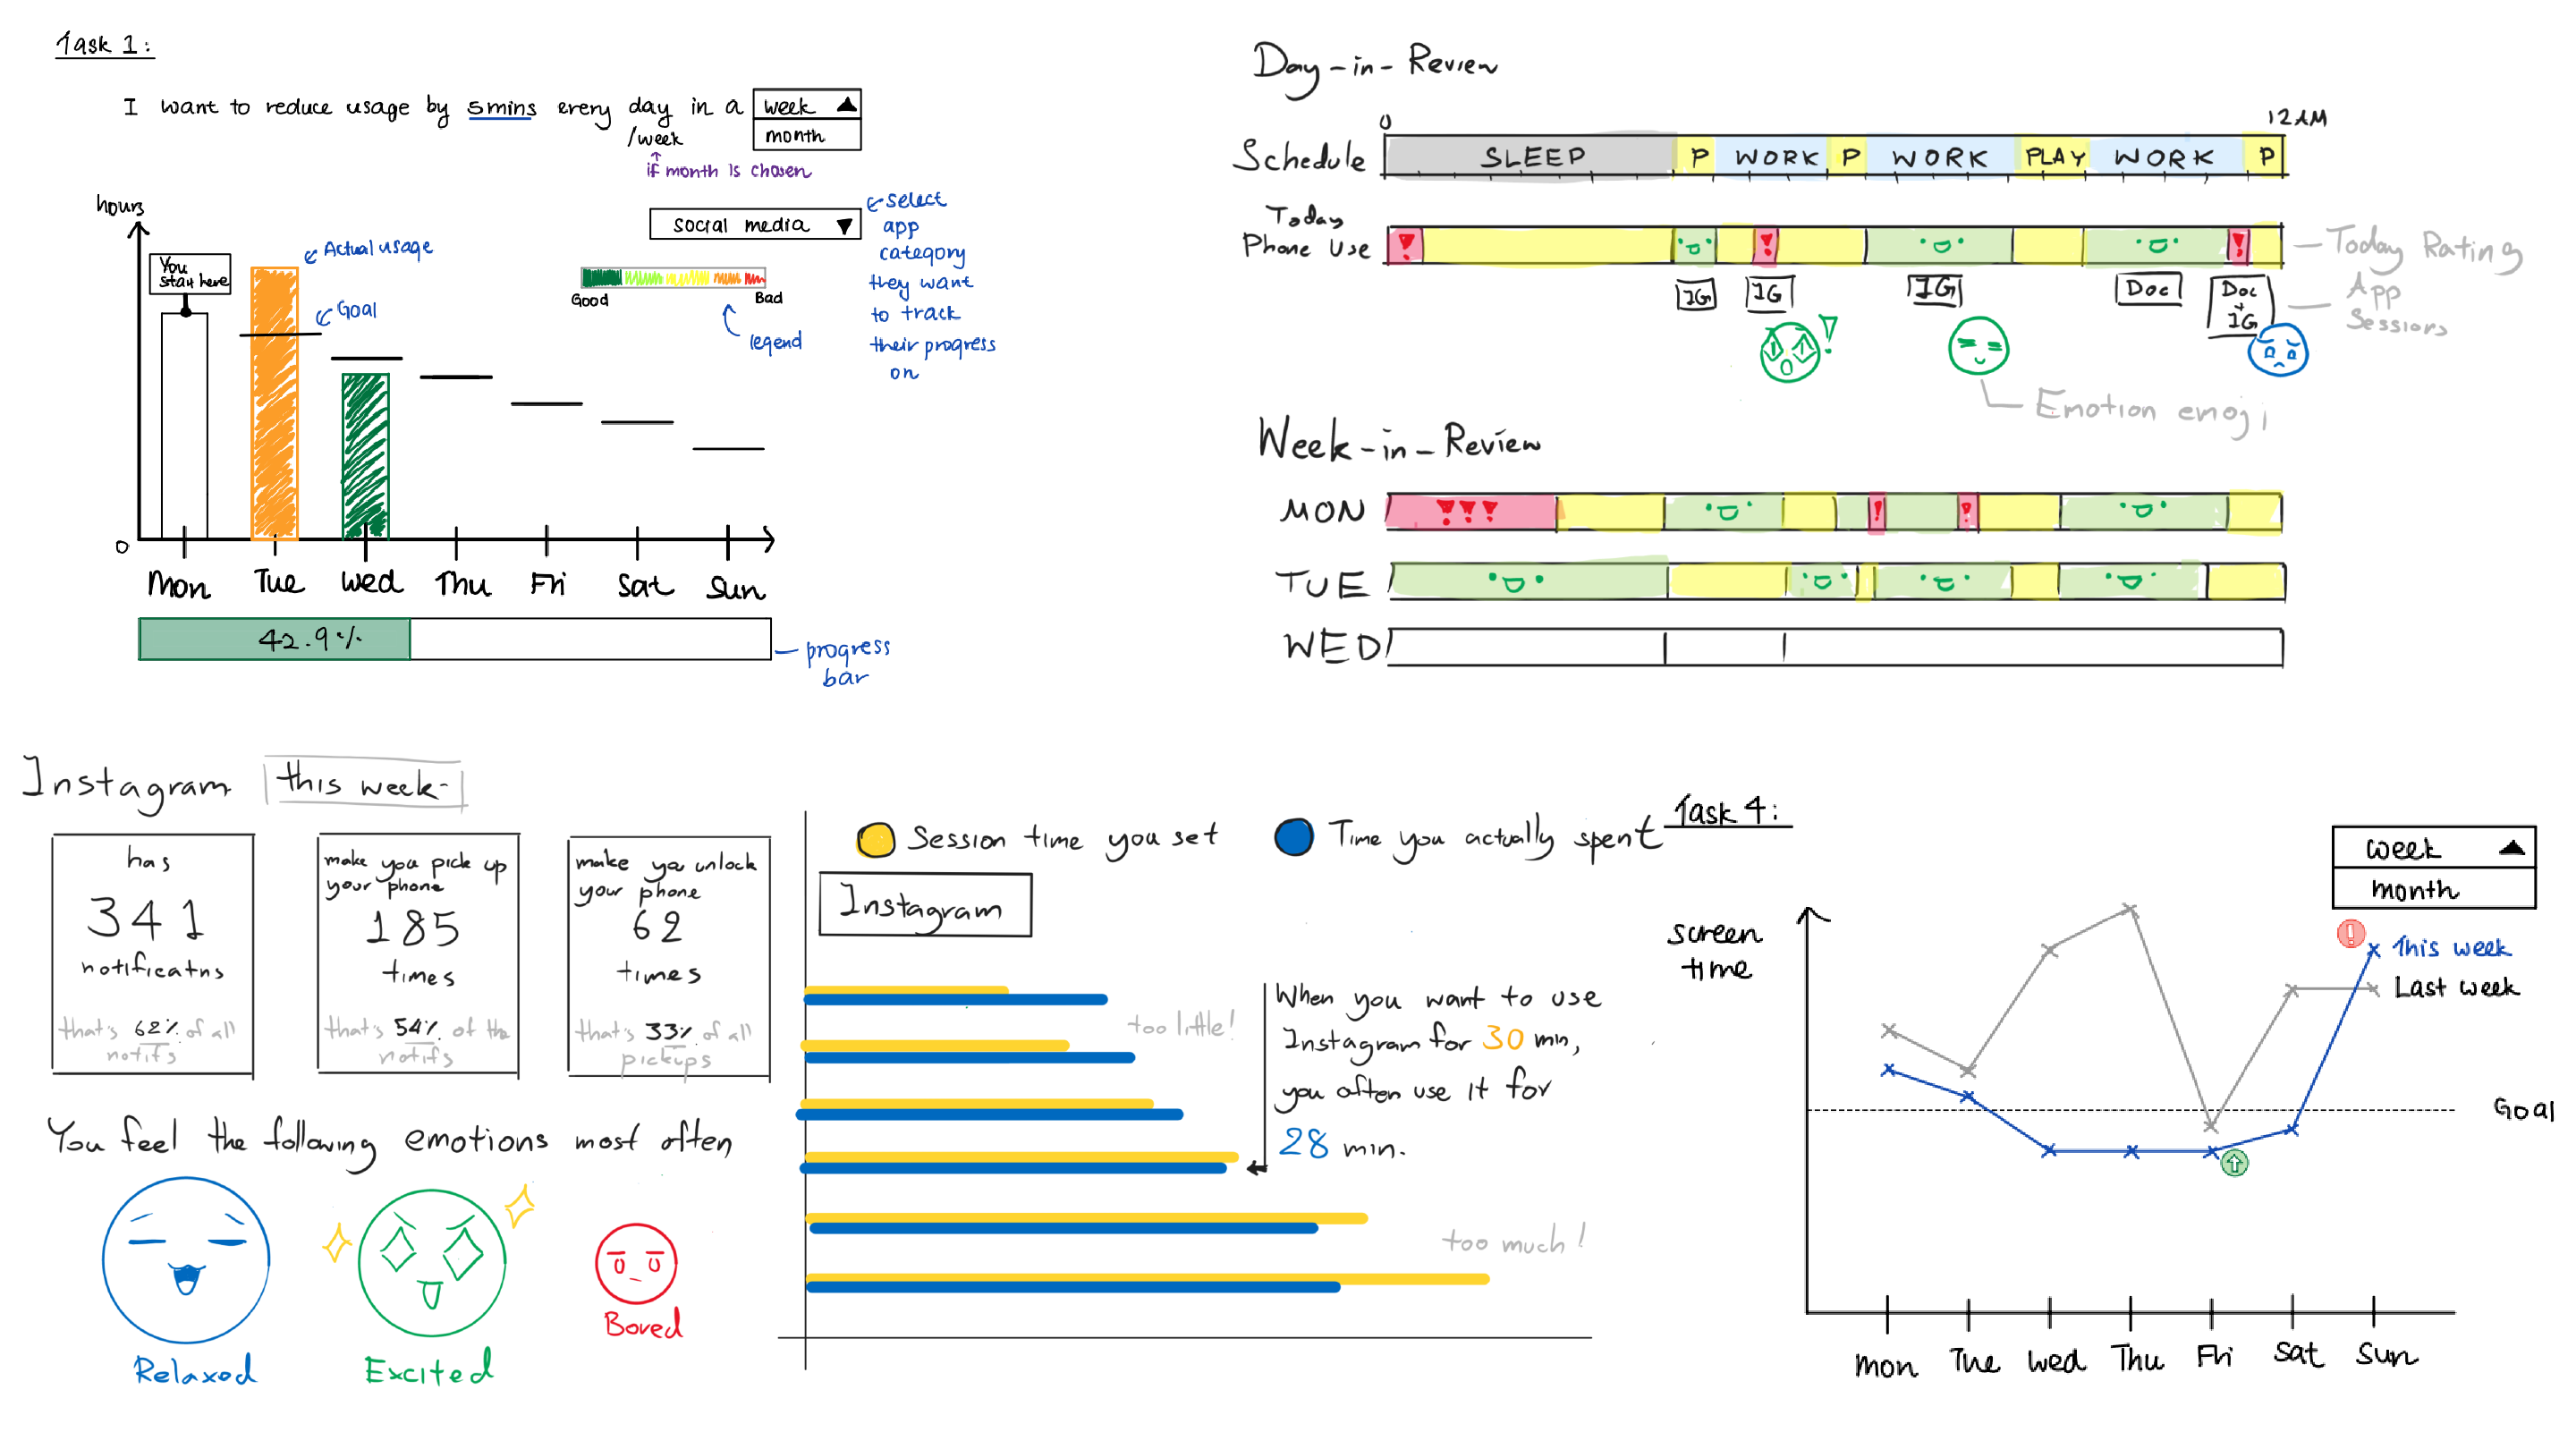 Task 1:
I want to reduce usage by 5mins every day in a week
/week
month
if month is chosen
hours
social media
select
app
category
they want
to track
their progress
on
Actual usage
You
start here
Goal
Good
Bad
legend
0
Mon Tue Wed Thu Fri Sat Sun
42.9%
progress
bar
Day-in-Review
0
12AM
Schedule
SLEEP P WORK P WORK PLAY WORK P
Today
Phone Use
! !  !
Today Rating
IG IG IG Doc Doc
+
IG
App
Sessions
!
Emotion emoji
Week-in-Review
MON
!!! ! !
TUE
WED
Instagram this week
has
341
notificatns
that's 62% of all
notifs
make you pick up
your phone
185
times
that's 54% of the
notifs
make you unlock
your phone
62
times
that's 33% of all
pickups
You feel the following emotions most often
Relaxed
Excited
Bored
Session time you set
Time you actually spent
Instagram
too little!
When you want to use
Instagram for 30 min,
you often use it for
28 min.
too much!
Task 4:
week
month
screen
time
!
This week
Last week
Goal
mon Tue wed Thu Fri Sat Sun